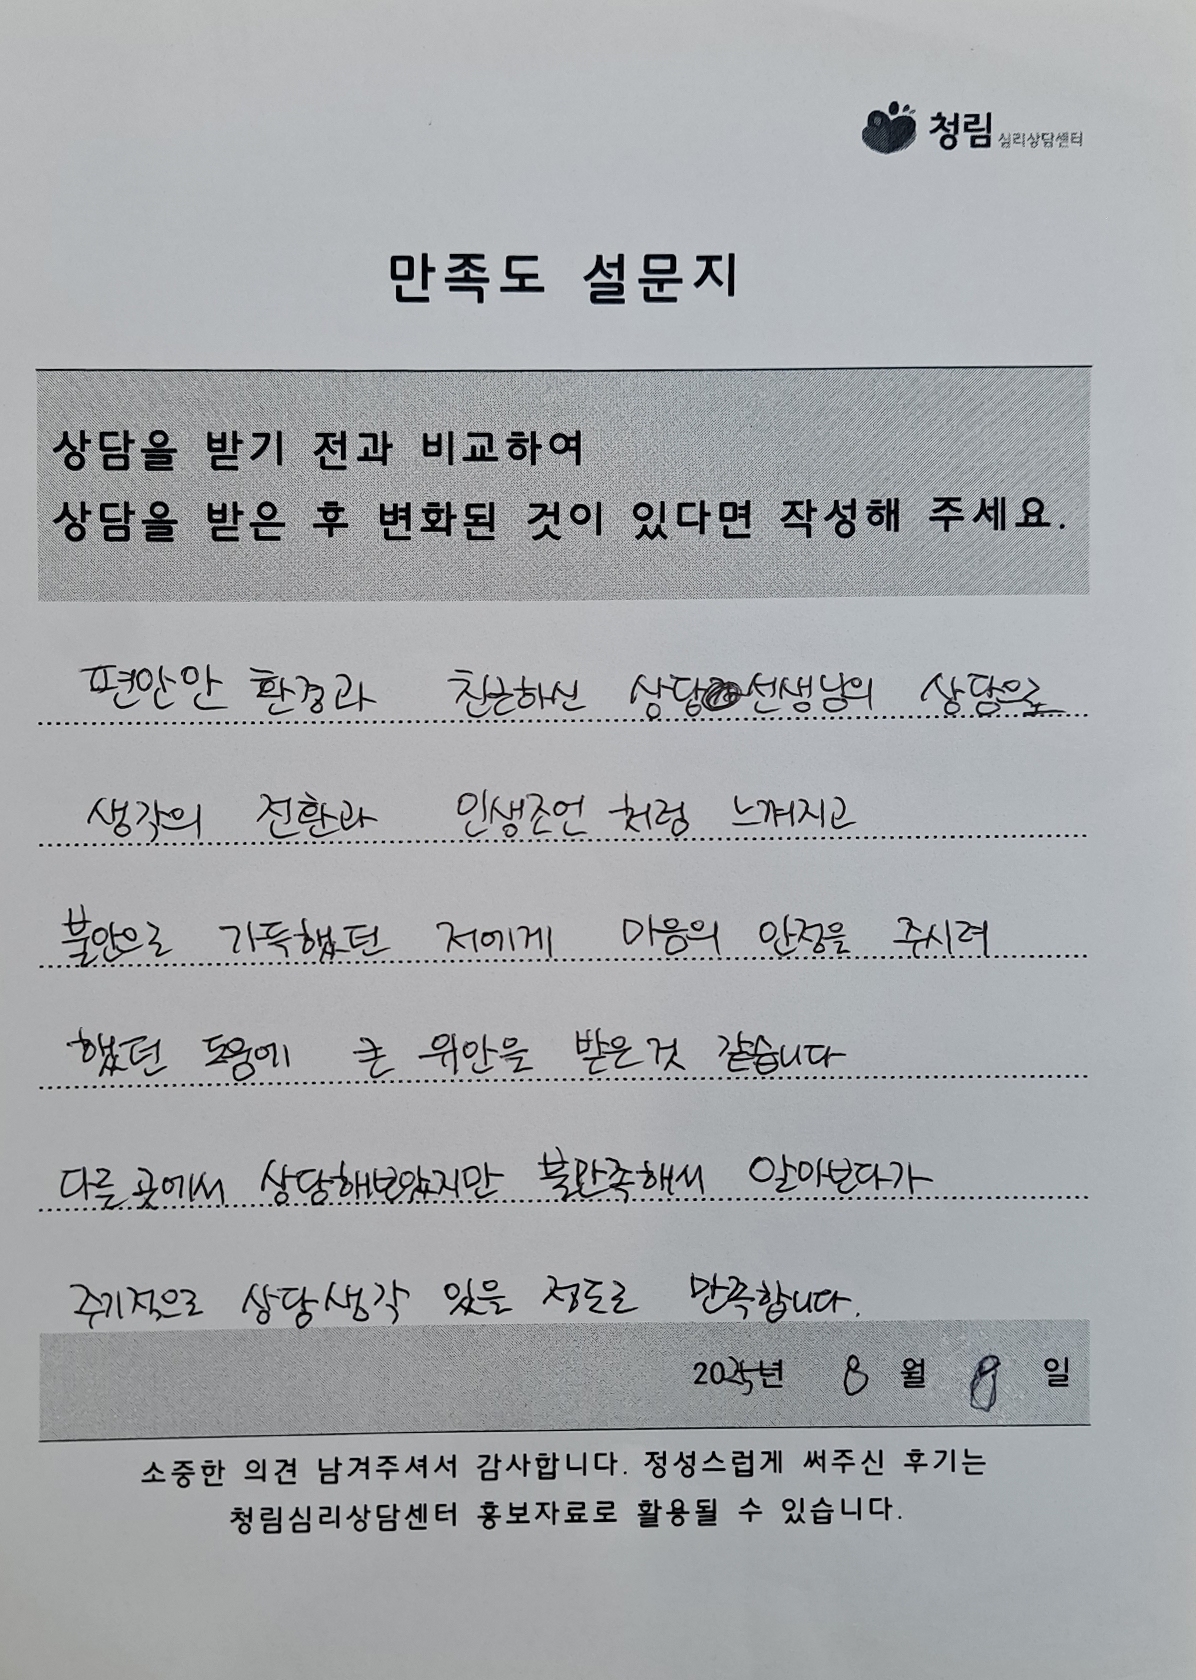 청림 심리상담센터
만족도 설문지
상담을 받기 전과 비교하여
상담을 받은 후 변화된 것이 있다면 작성해 주세요.
편안안 환경과 친근하신 상담선생님의 상담으로
생각의 전환과 인생조언 처럼 느껴지고
불안으로 가득했던 저에게 마음의 안정을 주시려
했던 도움에 큰 위안을 받은것 같습니다
다른곳에서 상담해보았지만 불만족해서 알아보다가
주기적으로 상담생각 있을 정도로 만족합니다.
2025년 8월 8일
소중한 의견 남겨주셔서 감사합니다. 정성스럽게 써주신 후기는
청림심리상담센터 홍보자료로 활용될 수 있습니다.